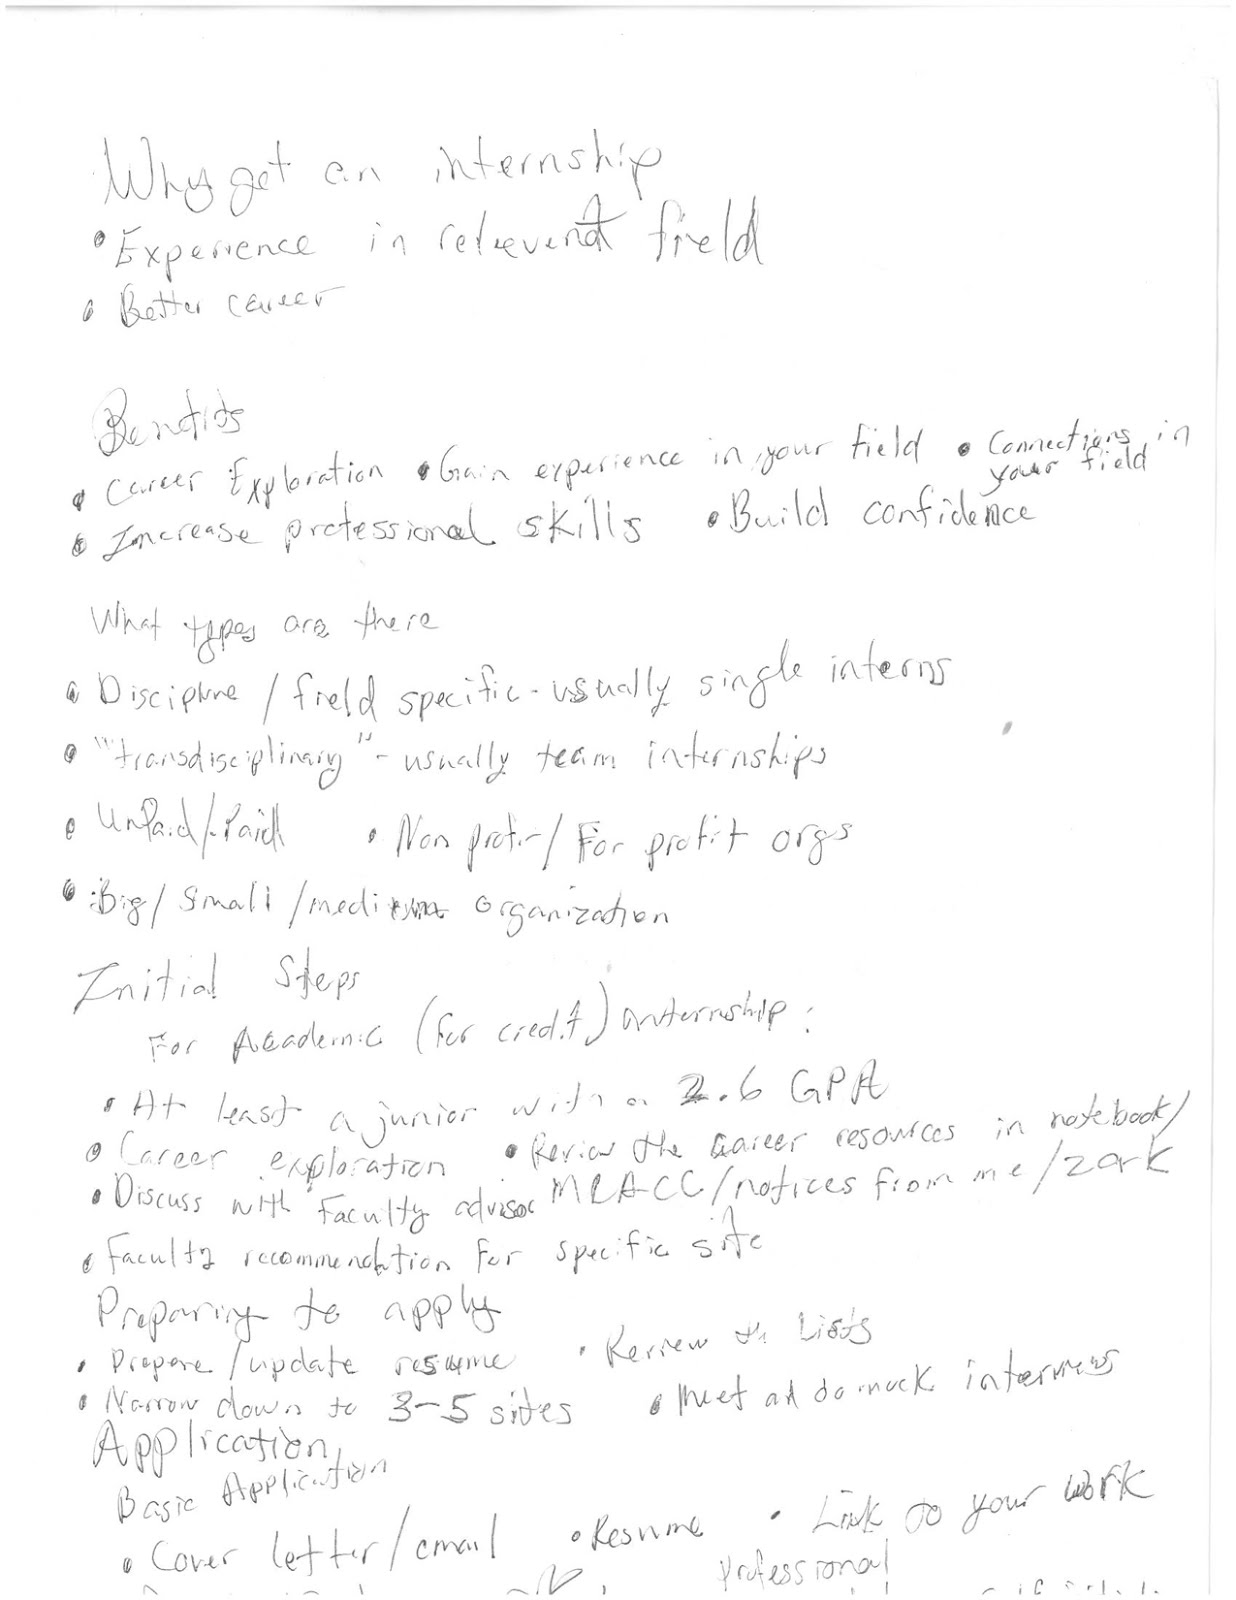 Why get an internship
• Experience in relevent field
• Better career
Benefits
• Career Exploration • Gain experience in your field • Connections in
your field
• Increase professional skills • Build confidence
What types are there
• Discipline / field specific - usually single interns
• "transdisciplinary" - usually team internships
• Unpaid/Paid • Non profit/ For profit orgs
• Big/ Small /medium organization
Initial Steps
For Academic (for credit) internship:
• At least a junior with a 2.6 GPA
• Career exploration • Review the career resources in notebook/
• Discuss with Faculty advisor MRACC/notices from me/zark
• Faculty recommendation for specific site
Preparing to apply
• Prepare /update resume • Review the Lists
• Narrow down to 3-5 sites • Meet and do mock interviews
Application
Basic Application
• Cover letter/email • Resume • Link to your work
Professional